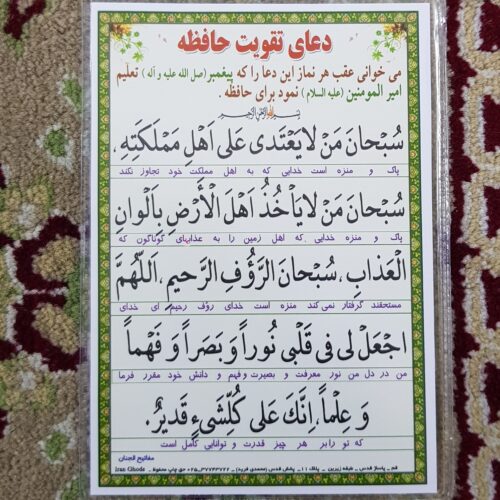 دعای تقویت حافظه
می خوانی عقب هر نماز این دعا را که پیغمبر(صل الله علیه و آله) تعلیم
امیر المومنین (علیه السلام) نمود برای حافظه.
بسم الله الرحمن الرحیم
سُبْحانَ مَنْ لایَعْتَدی عَلی اَهْلِ مَمْلَکَتِهِ،
پاک و منزه است خدایی که به اهل مملکت خود تجاوز نکند
سُبْحانَ مَنْ لایَأخُذُ اَهْلَ الْأَرْضِ بِاَلْوانِ
پاک و منزه خدایی که اهل زمین را به عذابهای گوناگون که
الْعَذابِ، سُبْحانَ الرَّؤُفِ الرَّحیمِ، اَللّهُمَّ
مستحقند گرفتار نمی کند منزه است خدای رؤف رحیم ای خدای
اجْعَلْ لی فی قَلْبی نُوراً وَ بَصَراً وَ فَهْماً
من در دل من نور معرفت و بصیرت و فهم و دانش خود مقرر فرما
وَ عِلْماً، اِنَّکَ عَلی کُلِّشَیءٍ قَدیرٌ.
که تو رابر هر چیز قدرت و توانایی کامل است
مفاتیح الجنان
قم ـ پاساژ قدس ـ طبقه زیرین ـ پلاک ۱۱ ـ پخش قدس (محمدی فرید) ـ ۳۷۷۴۳۷۲۲-۰۲۵ حق چاپ محفوظ ـ Iran Ghods